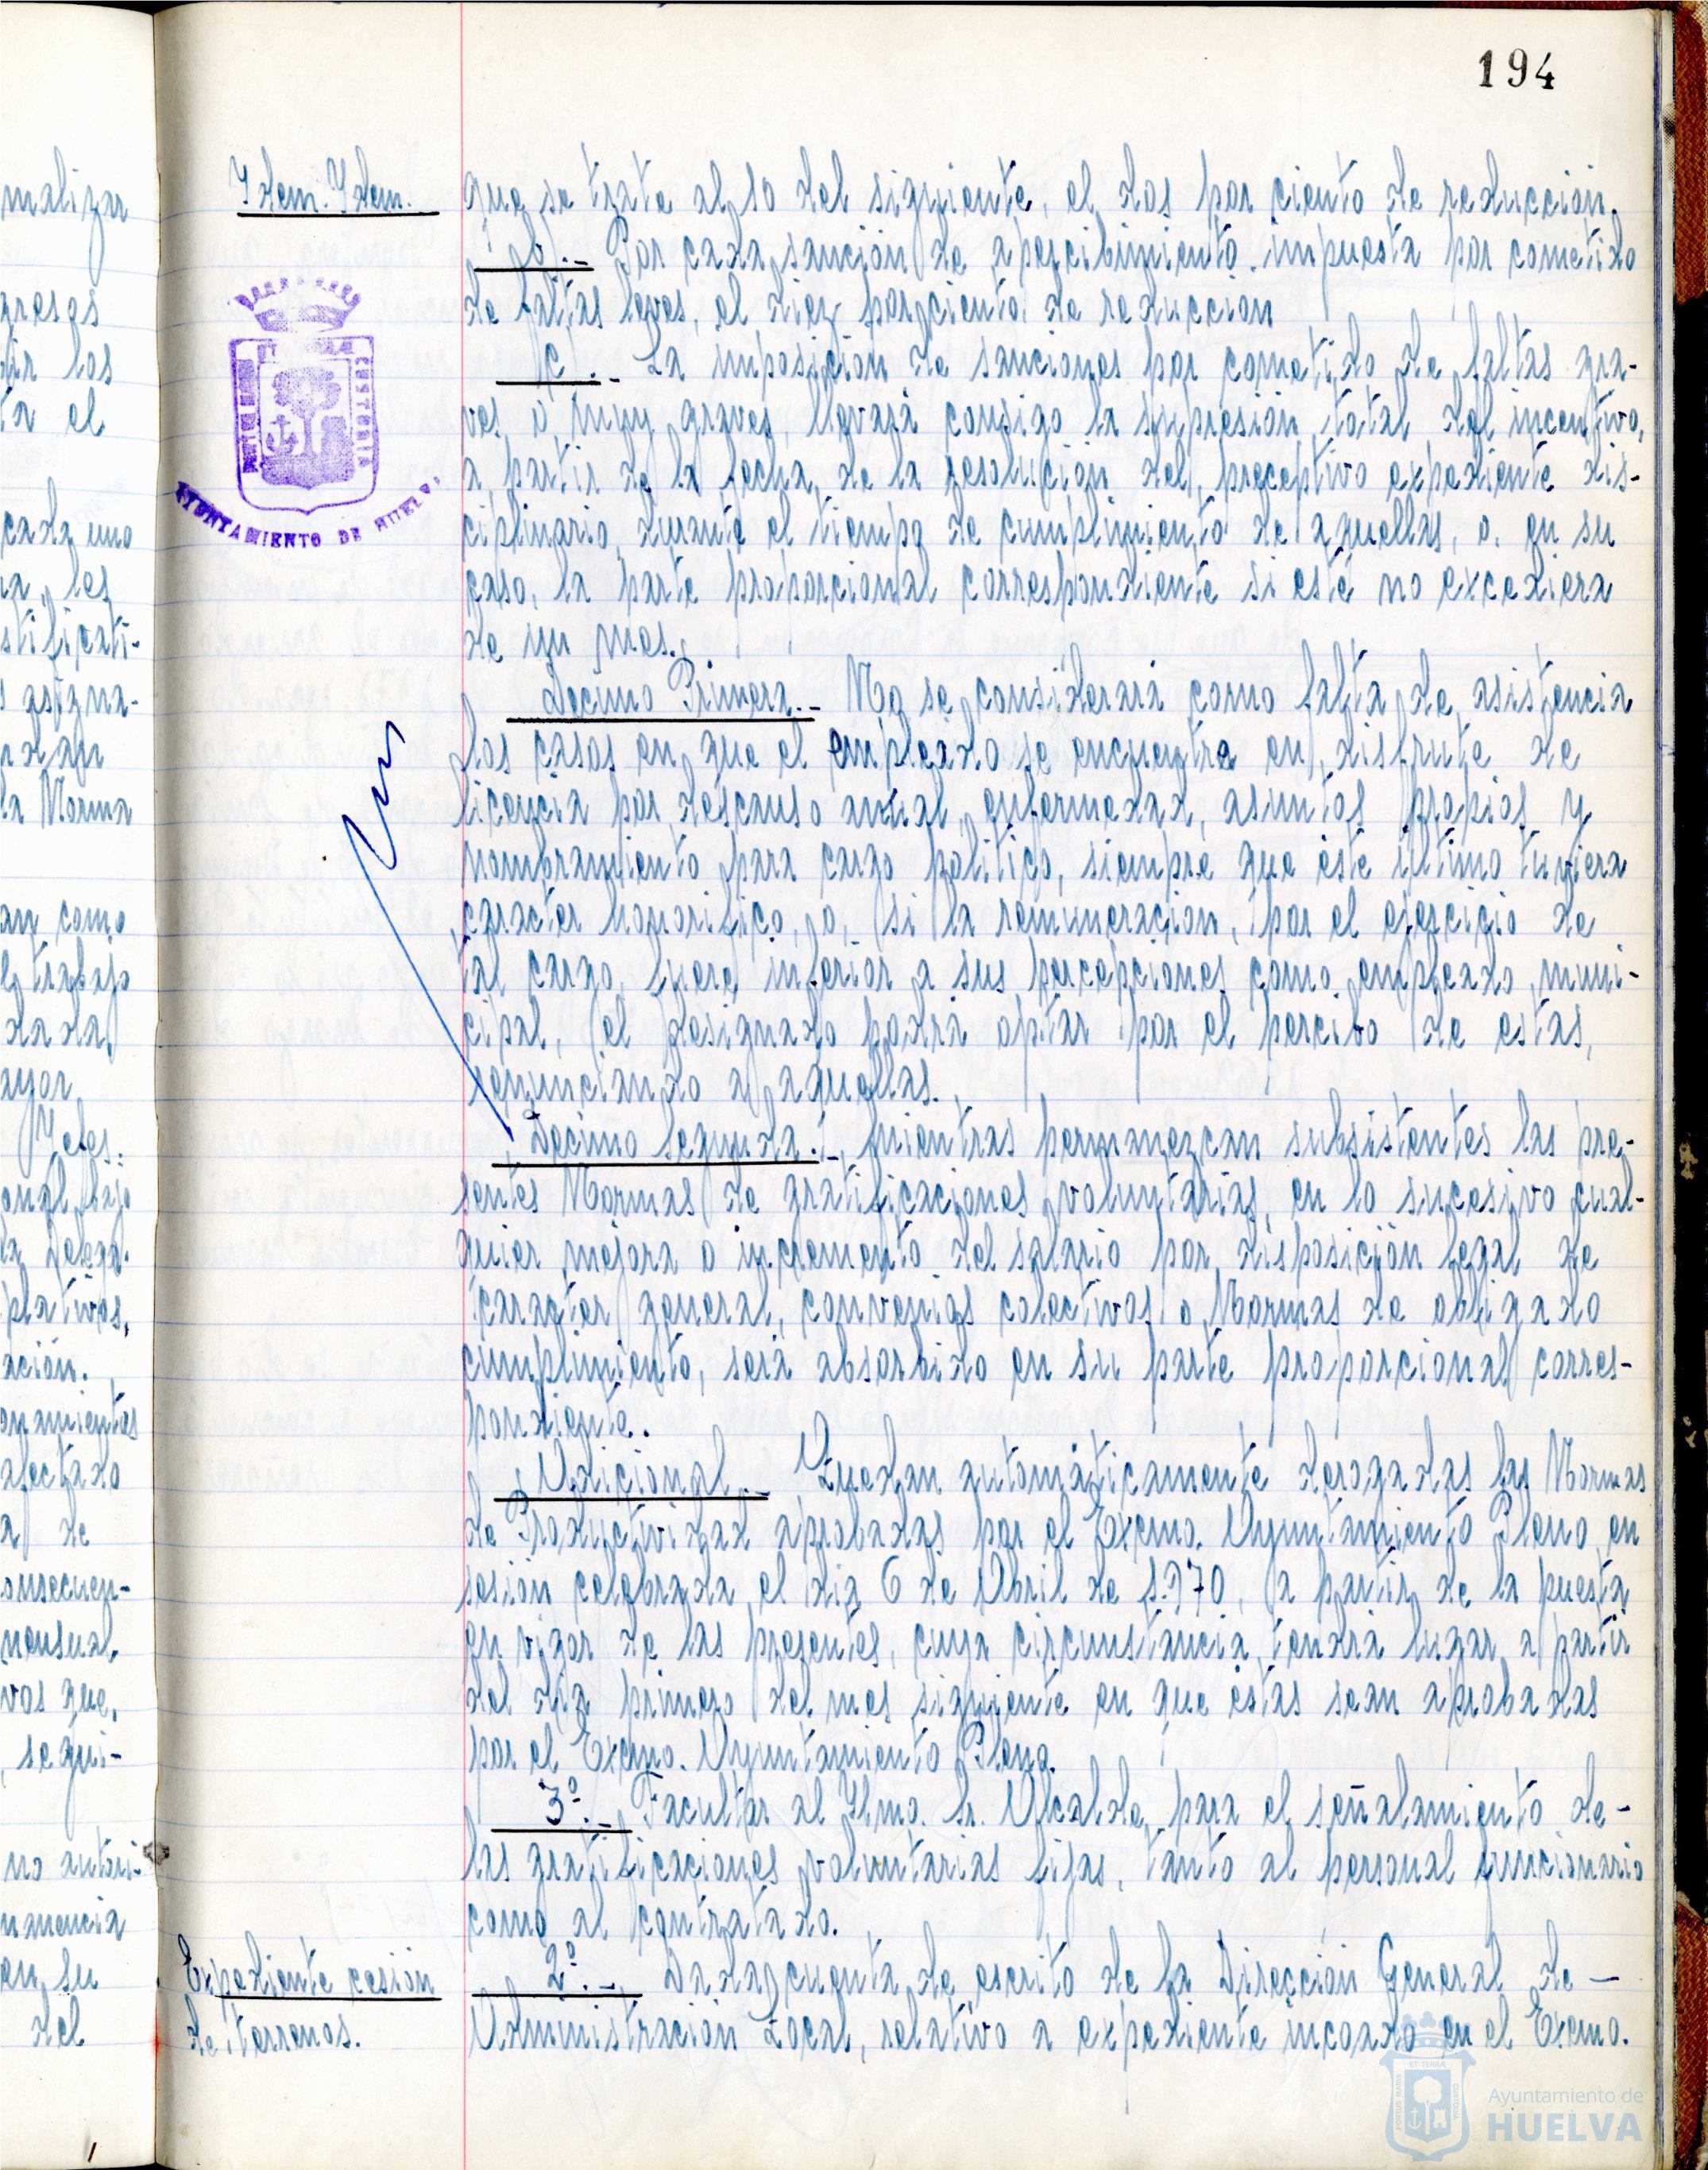 194
malizar
gresos
los
ta el
cada uno
les
stificati-
asigna-
la Norma
an como
trabajo
ayor
Jefes.
onal, bajo
plativos,
ación.
onamientos
afectado
a de
onsecuen-
mensual.
vos que,
segui-
no autori-
en su
del
Idem. Idem.
que se trate al 10 del siguiente, el dos por ciento de reducción.
b).- Por cada sanción de apercibimiento impuesta por cometido
de faltas leves, el diez por ciento de reducción
c).- La imposición de sanciones por cometido de faltas gra-
ves o muy graves llevará consigo la supresión total del incentivo,
a partir de la fecha de la resolución del preceptivo expediente dis-
ciplinario, durante el tiempo de cumplimiento de aquellas, o, en su
caso, la parte proporcional correspondiente si esté no excediera
de un mes.
Décimo Primera.- No se considerará como falta de asistencia
los casos en que el empleado se encuentre en disfrute de
licencia por descanso anual, enfermedad, asuntos propios y
nombramiento para cargo político, siempre que éste último tuviera
caracter honorífico, o, si la remuneración, por el ejercicio de
tal cargo, fuere inferior a sus percepciones como empleado muni-
cipal, el designado podrá optar por el percibo de estas,
renunciando a aquellas.
Décimo Segunda.- Mientras permanezcan subsistentes las pre-
sentes Normas de gratificaciones voluntarias, en lo sucesivo cual-
quier mejora o incremento del salario por disposición legal de
caracter general, convenios colectivos o Normas de obligado
cumplimiento, será absorbido en su parte proporcional corres-
pondiente.
Adicional.- Quedan automáticamente derogadas las Normas
de Productividad aprobadas por el Excmo. Ayuntamiento Pleno en
sesión celebrada el día 6 de Abril de 1.970, a partir de la puesta
en vigor de las presentes, cuya circunstancia tendrá lugar a partir
del día primero del mes siguiente en que éstas sean aprobadas
por el Excmo. Ayuntamiento Pleno.
3º.- Facultar al Ilmo. Sr. Alcalde para el señalamiento de-
las gratificaciones voluntarias fijas, tanto al personal funcionario
como al contratado.
Expediente cesión
de terrenos.
2º.- Dada cuenta de escrito de la Dirección General de-
Administración Local, relativo a expediente incoado en el Excmo.
AYUNTAMIENTO DE HUELVA
Ayuntamiento de
HUELVA